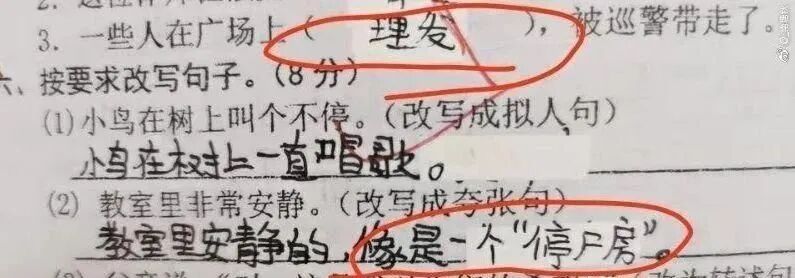 3. 一些人在广场上(理发),被巡警带走了。
六、按要求改写句子。(8分)
(1)小鸟在树上叫个不停。(改写成拟人句)
小鸟在树上一直唱歌。
(2) 教室里非常安静。(改写成夸张句)
教室里安静的,像是一个“停尸房”。